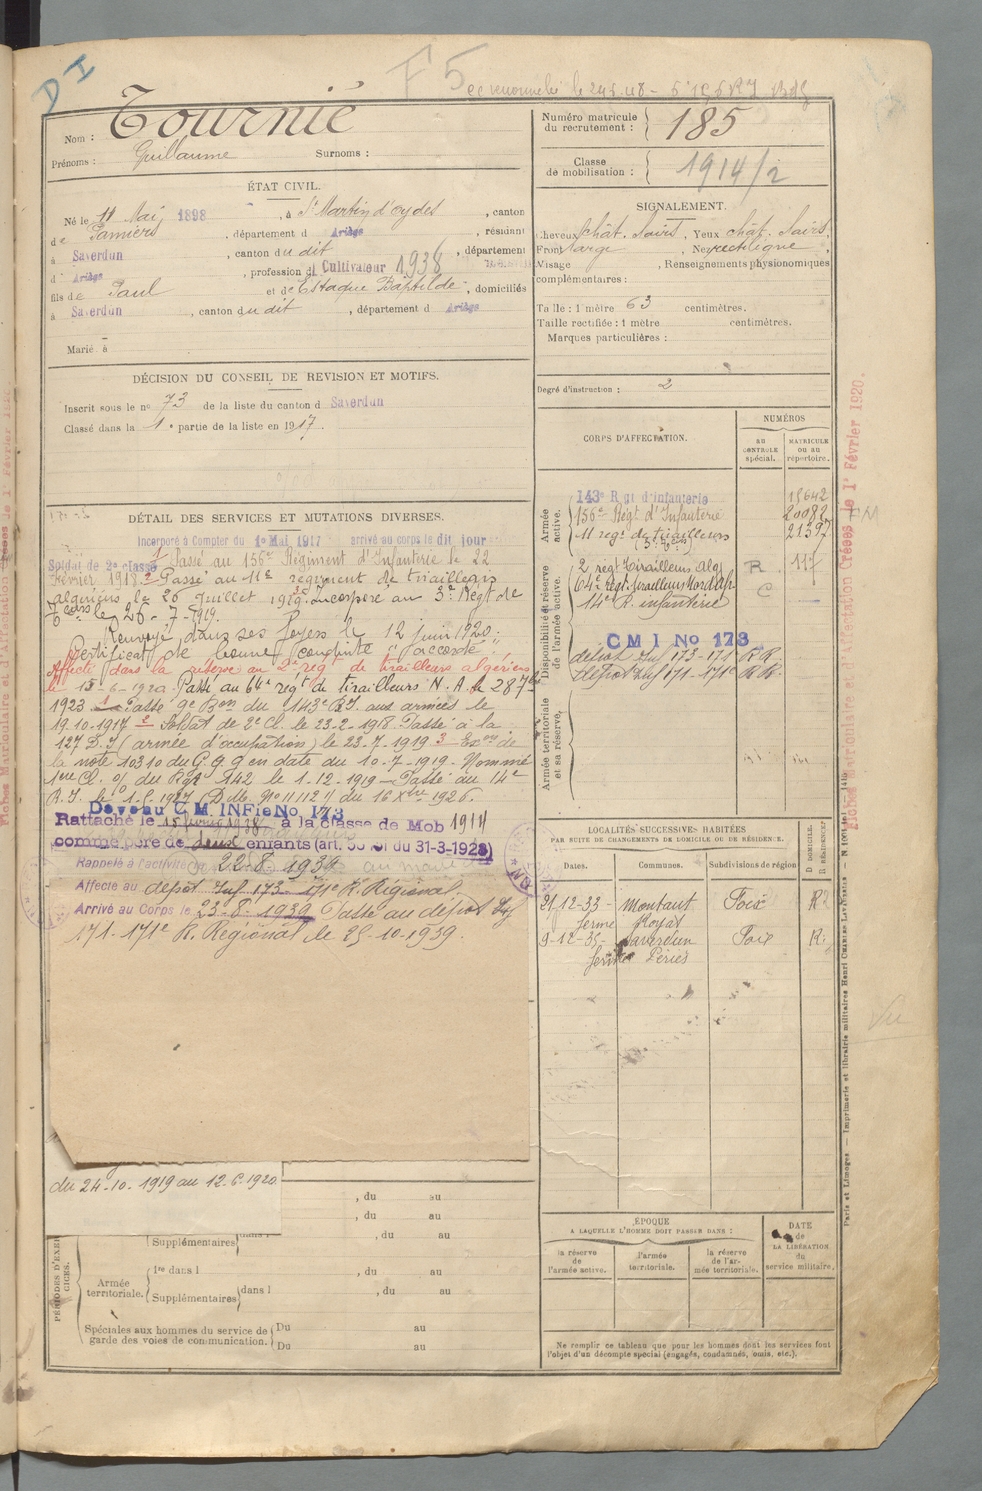 DI
F5
Nom : Tournié
Prénoms : Guillaume Surnoms :
Numéro matricule du recrutement : 185
Classe de mobilisation : 1914/2
ÉTAT CIVIL.
Né le 11 Mai 1898, à St Martin d'oydes, canton
de Pamiers, département d Ariège, résidant
à Saverdun, canton du dit, département
d' Ariège, profession d Cultivateur 1938
fils de Paul et de Estaque Baptilde, domiciliés
à Saverdun, canton du dit, département d Ariège
Marié à
SIGNALEMENT.
Cheveux chât. noirs, Yeux chât. noirs
Front large, Nez rectiligne,
Visage , Renseignements physionomiques
complémentaires :
Taille : 1 mètre 63 centimètres.
Taille rectifiée : 1 mètre centimètres.
Marques particulières :
Degré d'instruction : 2
DÉCISION DU CONSEIL DE REVISION ET MOTIFS.
Inscrit sous le no 73 de la liste du canton d Saverdun
Classé dans la 1e partie de la liste en 1917.
DÉTAIL DES SERVICES ET MUTATIONS DIVERSES.
Incorporé à Compter du 1er Mai 1917 arrivé au corps le dit jour
Soldat de 2e classe 1 Passé au 156e Régiment d'Infanterie le 22
Février 1918 2 Passé au 11e régiment de tirailleurs
algériens le 26 Juillet 1919 3 Incorporé au 3e Régt de
le 26-7-1919.
Renvoyé dans ses foyers le 12 juin 1920.
Certificat de bonne conduite "accordé".
Affecté dans la réserve au 2e régt de tirailleurs algériens
le 15-6-1920 Passé au 64e régt de tirailleurs N. A. le 28 7bre
1923 1 Passé 9e Bon du 143e R.I. aux armées le
19.10.1917 2 Soldat de 2e Cl. le 23-2-1918. Passé à la
127 D.I. (armée d'occupation) le 23-7-1919 3 Exon de
la note 10310 du G.Q.G en date du 10-7-1919. Nommé
1ere Cl. O/ du Rgt 142 le 1.12.1919 — Passé au 14e
R.I. le 1.1.1927 (D.M. No 11112 11 du 16 Xbre 1926.
Devenu C.M. INFie No. 173
Rattaché le 15 février 1938 à la classe de Mob 1914
comme père de deux enfants (art. 58 du 31-3-1928)
Rappelé à l'activité 22-8-1939
Affecté au dépôt Inf 173 - 171e R. Régional.
Arrivé au Corps le 23-8-1939 Passé au dépôt Inf
171-171e R. Régional le 25-10-1939.
CORPS D'AFFECTATION.
NUMÉROS
AU CONTROLE spécial.
MATRICULE ou au répertoire.
Armée active.
143e Rgt d'infanterie 15642
156e Régt d'Infanterie 20082
11 régt de tirailleurs 21397
Disponibilité et réserve de l'armée active.
2 régt Tirailleurs alg R 117
64e régt Tirailleurs Nord af. C
14e R. infanterie
CMI No 173
dépôt Inf 173-171 RR.
dépôt Inf 171-171e RR.
Armée territoriale et sa réserve.
LOCALITÉS SUCCESSIVES HABITÉES
PAR SUITE DE CHANGEMENTS DE DOMICILE OU DE RÉSIDENCE.
Dates. Communes. Subdivisions de région
D DOMICILE. R RÉSIDENCE
21-12-33 - Montaut Foix R
ferme Royat
9-12-35 - Saverdun Foix R.
ferme Périès
du 24-10.1919 au 12.6.1920
, du au
, du au
Supplémentaires , du au
PÉRIODES D'EXERCICES.
Armée territoriale.
1re dans l , du au
Supplémentaires dans l , du au
Spéciales aux hommes du service de garde des voies de communication.
Du au
Du au
ÉPOQUE
A LAQUELLE L'HOMME DOIT PASSER DANS :
la réserve de l'armée active.
l'armée territoriale.
la réserve de l'armée territoriale.
DATE de LA LIBÉRATION du service militaire.
Ne remplir ce tableau que pour les hommes dont les services font
l'objet d'un décompte spécial (engagés, condamnés, omis, etc.).
Fiches Matriculaire et d'Affectation Créées le 1er Février 1920.
Paris et Limoges — Imprimerie et librairie militaires Henri CHARLES-LAVAUZELLE
Vu